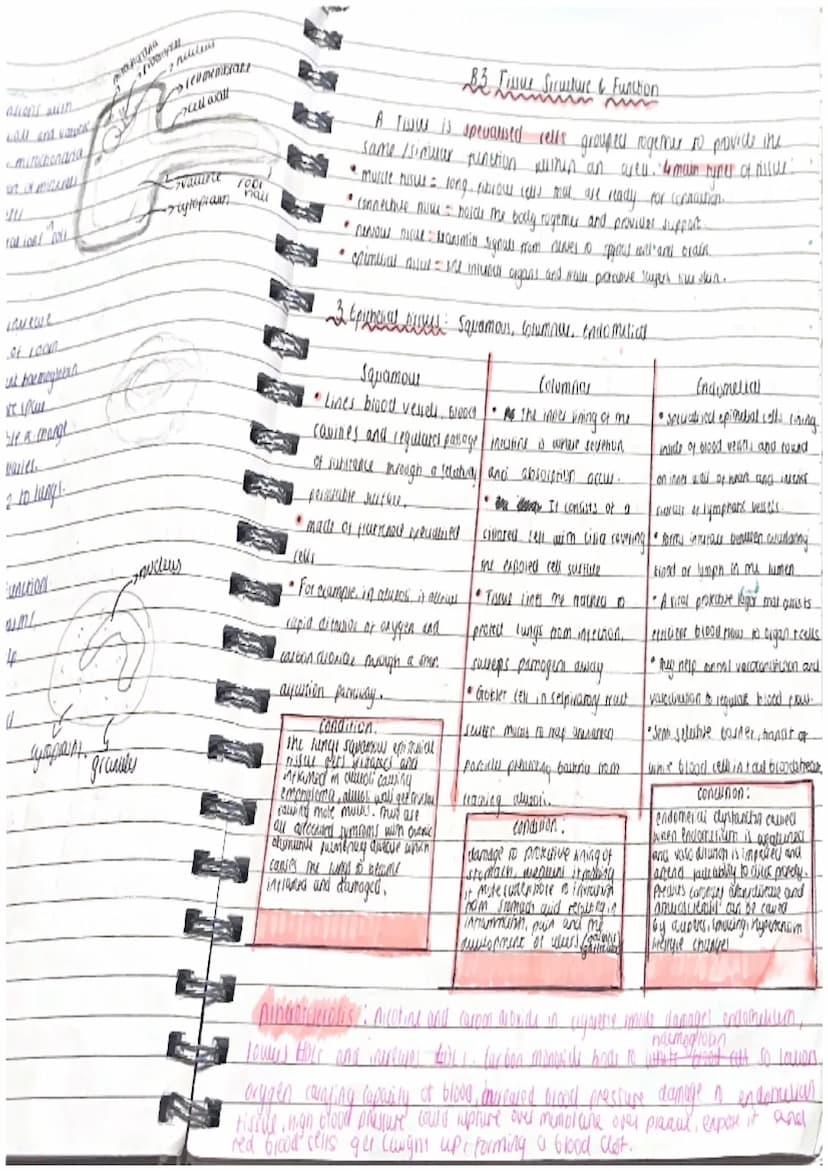 mitochondria
ribosomes
nucleus
cell membrane
cell wall
vacuole
cytoplasm
root
hair
mitochondria
of minerals
increase
of room
haemoglobin
to lungs.
function
nucleus
cytoplasm
granules
B3 Tissue Structure & Function
A Tissue is specialised cells grouped together to provide the
same/similar function within an area. 4 main types of tissue:
• muscle tissue = long fibrous cells that are ready for contraction.
• connective tissue = holds the body together and provides support.
• nervous tissue = transmit signals from nerves to spinal cord and brain.
• epithelial tissue = line internal organs and make protective layers like skin.
3 Epithelial tissues: Squamous, columnar, endothelial
Squamous
• Lines blood vessels, blood
cavities and regulates passage
of substance through a relatively
permeable surface.
• made of flattened specialised
cells
• For example, in alveoli it allows
rapid diffusion of oxygen and
carbon dioxide through a short
diffusion pathway.
condition:
the lungs squamous epithelial
tissue gets irritated and
inflamed in alveoli causing
emphysema, alveoli wall get
causing more mucus. These are
all associated symptoms with chronic
obstructive pulmonary disease which
causes the lungs to become
inflamed and damaged.
Columnar
• the inner lining of the
intestine is where secretion
and absorption occur.
• It consists of a
ciliated cell with cilia covering
the exposed cell surface
• Tissue lines the trachea to
protect lungs from infection,
sweeps pathogens away
• Goblet cell in respiratory tract
secrete mucus to trap unwanted
particles preventing bacteria from
reaching alveoli.
condition:
damage to protective lining of
stomach, weakens it making
it more vulnerable to irritation
from stomach acid resulting in
inflammation, pain and the
development of ulcers
Endothelial
• specialised epithelial cells lining
inside of blood vessels and found
on inner wall of heart and interior
surface of lymphatic vessels
• forms interface between circulating
blood or lymph in the lumen
• A vital protective layer that assists
efficient blood flow to organ + cells
• They help control vasoconstriction and
vasodilation to regulate blood flow.
• Semi selective barrier, transit of
white blood cell in + out bloodstream.
condition:
endothelial dysfunction caused
when endothelium is
and vasodilation is impaired and
arteries inability to dilate properly.
Predicts coronary artery disease and
can be caused
by diabetes, smoking, hypertension
lifestyle changes
Atherosclerosis: nicotine and carbon dioxide in cigarette smoke damages endothelium,
lowers HDLs and increases LDLs. Carbon monoxide binds to haemoglobin so lowers
oxygen carrying capacity of blood, increased blood pressure damage in endothelian
tissue, high blood pressure could rupture over membrane over plaque, expose it and
red blood cells get caught up + forming a blood clot.